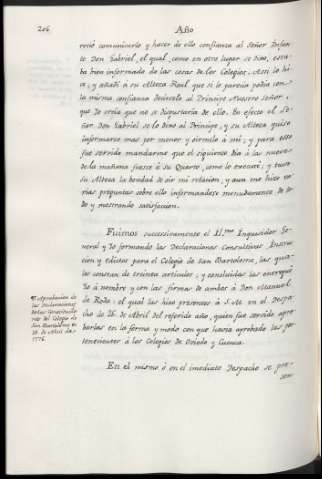 206
Año
reció comunicarlo y hacer de ello confianza al Señor Infan-
te Don Gabriel, el qual, como en otro lugar se dixo, esta-
ba bien informado de las cosas de los Colegios. Assi lo hi-
ce, y añadí a su Alteza Real que si le parecia podia con
la misma confianza decirselo al Principe Nuestro Señor,
que Yo creía que no se disgustaria de ello. En efecto el Se-
ñor Don Gabriel se lo dixo al Principe, y su Alteza quiso
informarse mas por menor y oirmelo á mi, y para esto
fue servido mandarme que el siguiente dia á las nueve
de la mañana fuesse á su Quarto, como lo execute, y tuvo
su Alteza la bondad de oir mi relacion, y aun me hizo va-
rias preguntas sobre ello informandose menudamente de to-
do y mostrando satisfaccion.
Fuimos successivamente el Il.mo Inquisidor Ge-
neral y Yo formando las Declaraciones Consultivas Instruc-
cion y edictos para el Colegio de San Bartolome, las qua-
les constan de treinta articulos, y concluidas las entregué
Yo á nombre y con las firmas de ambos á Don Manuel
de Roda: el qual las hizo presentes á S.M. en el Despa-
cho de 26. de Abril del referido año, quien fue servido apro-
barlas en la forma y modo con que havia aprobado las per-
tenecientes á los Colegios de Oviedo y Cuenca.
Aprobacion de
las Declaraciones
de las Constitucio-
nes del Colegio de
San Bartolome en
26 de Abril de
1776.
En el mismo ó en el imediato Despacho se pre-
sen-